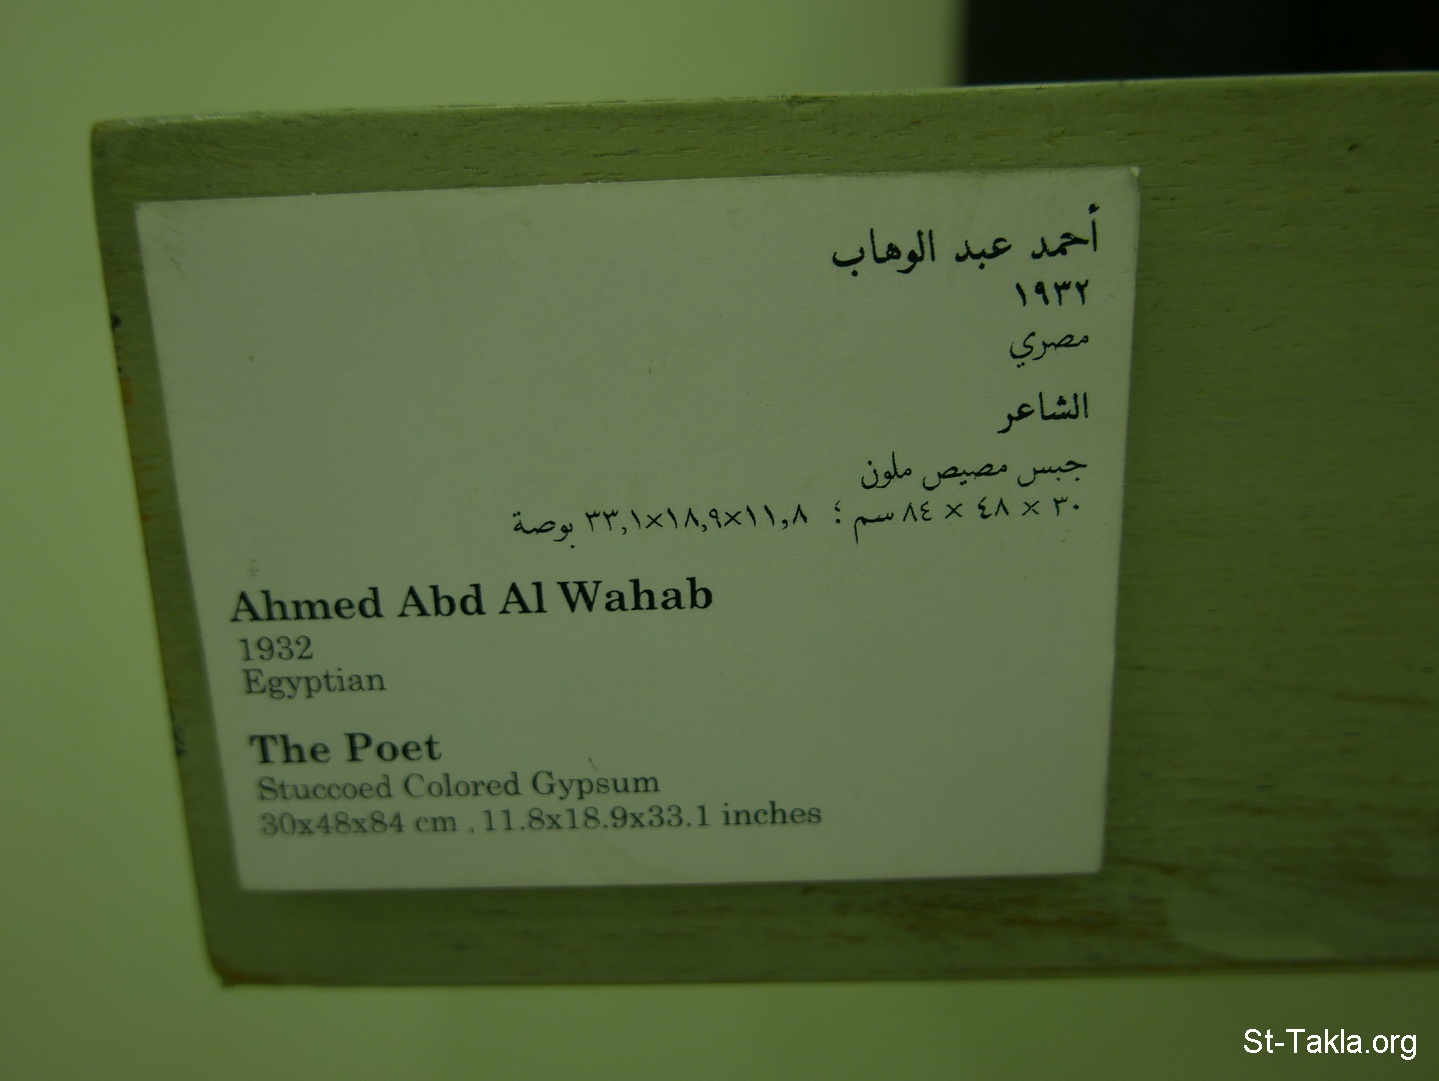 أحمد عبد الوهاب
١٩٣٢
مصري
الشاعر
جبس مصيص ملون
٣٠ × ٤٨ × ٨٤ سم ؛ ١١,٨×١٨,٩×٣٣,١ بوصة
Ahmed Abd Al Wahab
1932
Egyptian
The Poet
Stuccoed Colored Gypsum
30x48x84 cm , 11.8x18.9x33.1 inches
St-Takla.org